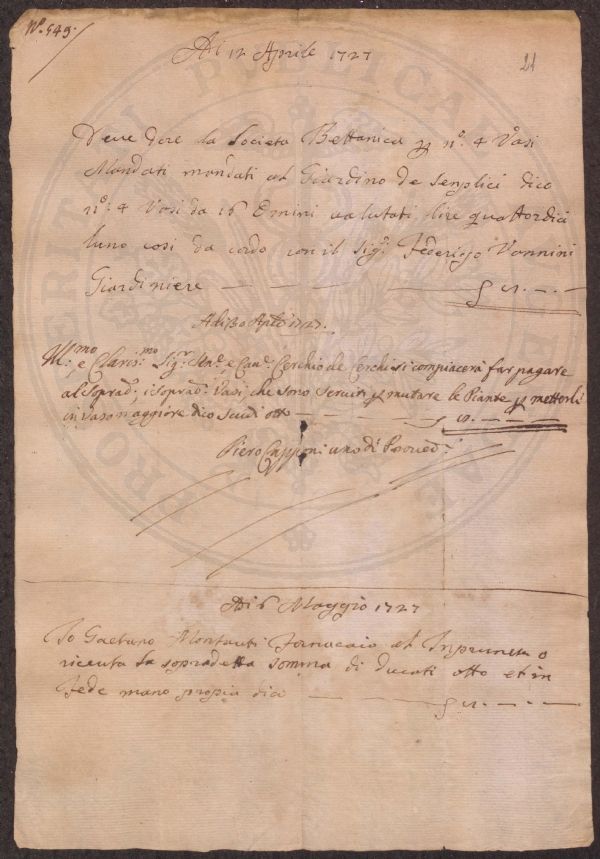 Nº. 549.
21
Adi 12 Aprile 1727
Deve dare la Societa Bottanica p nº: 4 Vasi
Mandati mandati al Giardino de senplici dico
nº: 4 Vasi da 16 Emini valutati lire quattordici
luno cosi da cordo con il Sig: Federigo Vannini
Giardiniere — — — — — — —
Adi 30 Aple 1727.
Ill:mo e Claris:mo Sigr: e Can: Cerchio de Cerchi si compiacerà far pagare
al soprad: i soprad: Vasi, che sono serviti p mutare le Piante p metterle
in vaso maggiore dico scudi otto — — — —
Piero Capponi uno di Proved:
Adi 6 Maggio 1727
Io Gaetano Montauti fornacaio al Inpruneta o
riceuta la sopradetta somma di ducati otto et in
fede mano propia dico — — — —
PRO BERITATI PVBLICAE